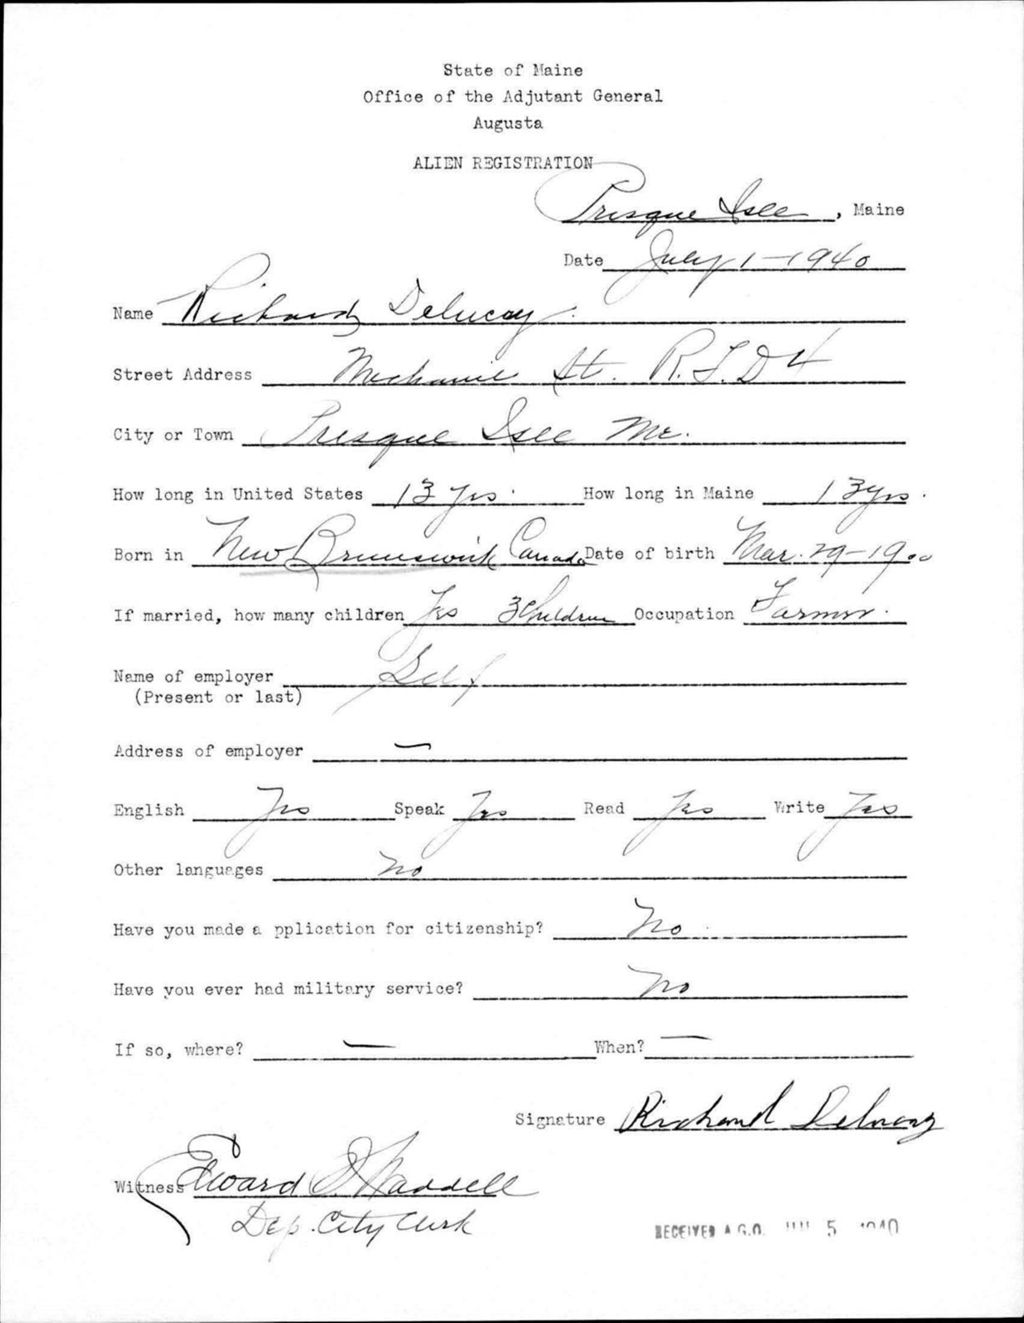 State of Maine
Office of the Adjutant General
Augusta
ALIEN REGISTRATION
Presque Isle, Maine
Date July 1-1940
Name Richard
Street Address Mechanic St. R.F.D 4
City or Town Presque Isle Me.
How long in United States 13 yrs. How long in Maine 13 yrs.
Born in New Brunswick Canada Date of birth Mar. 29-1900
If married, how many children Yes 3 Children Occupation Farmer.
Name of employer Self
(Present or last)
Address of employer —
English Yes Speak Yes Read Yes Write Yes
Other languages No
Have you made a pplication for citizenship? No.
Have you ever had military service? No
If so, where? — When? —
Signature Richard
Witness Edward Waddell
Dep. City Clerk
RECEIVED A.G.O. JUL 5 1940